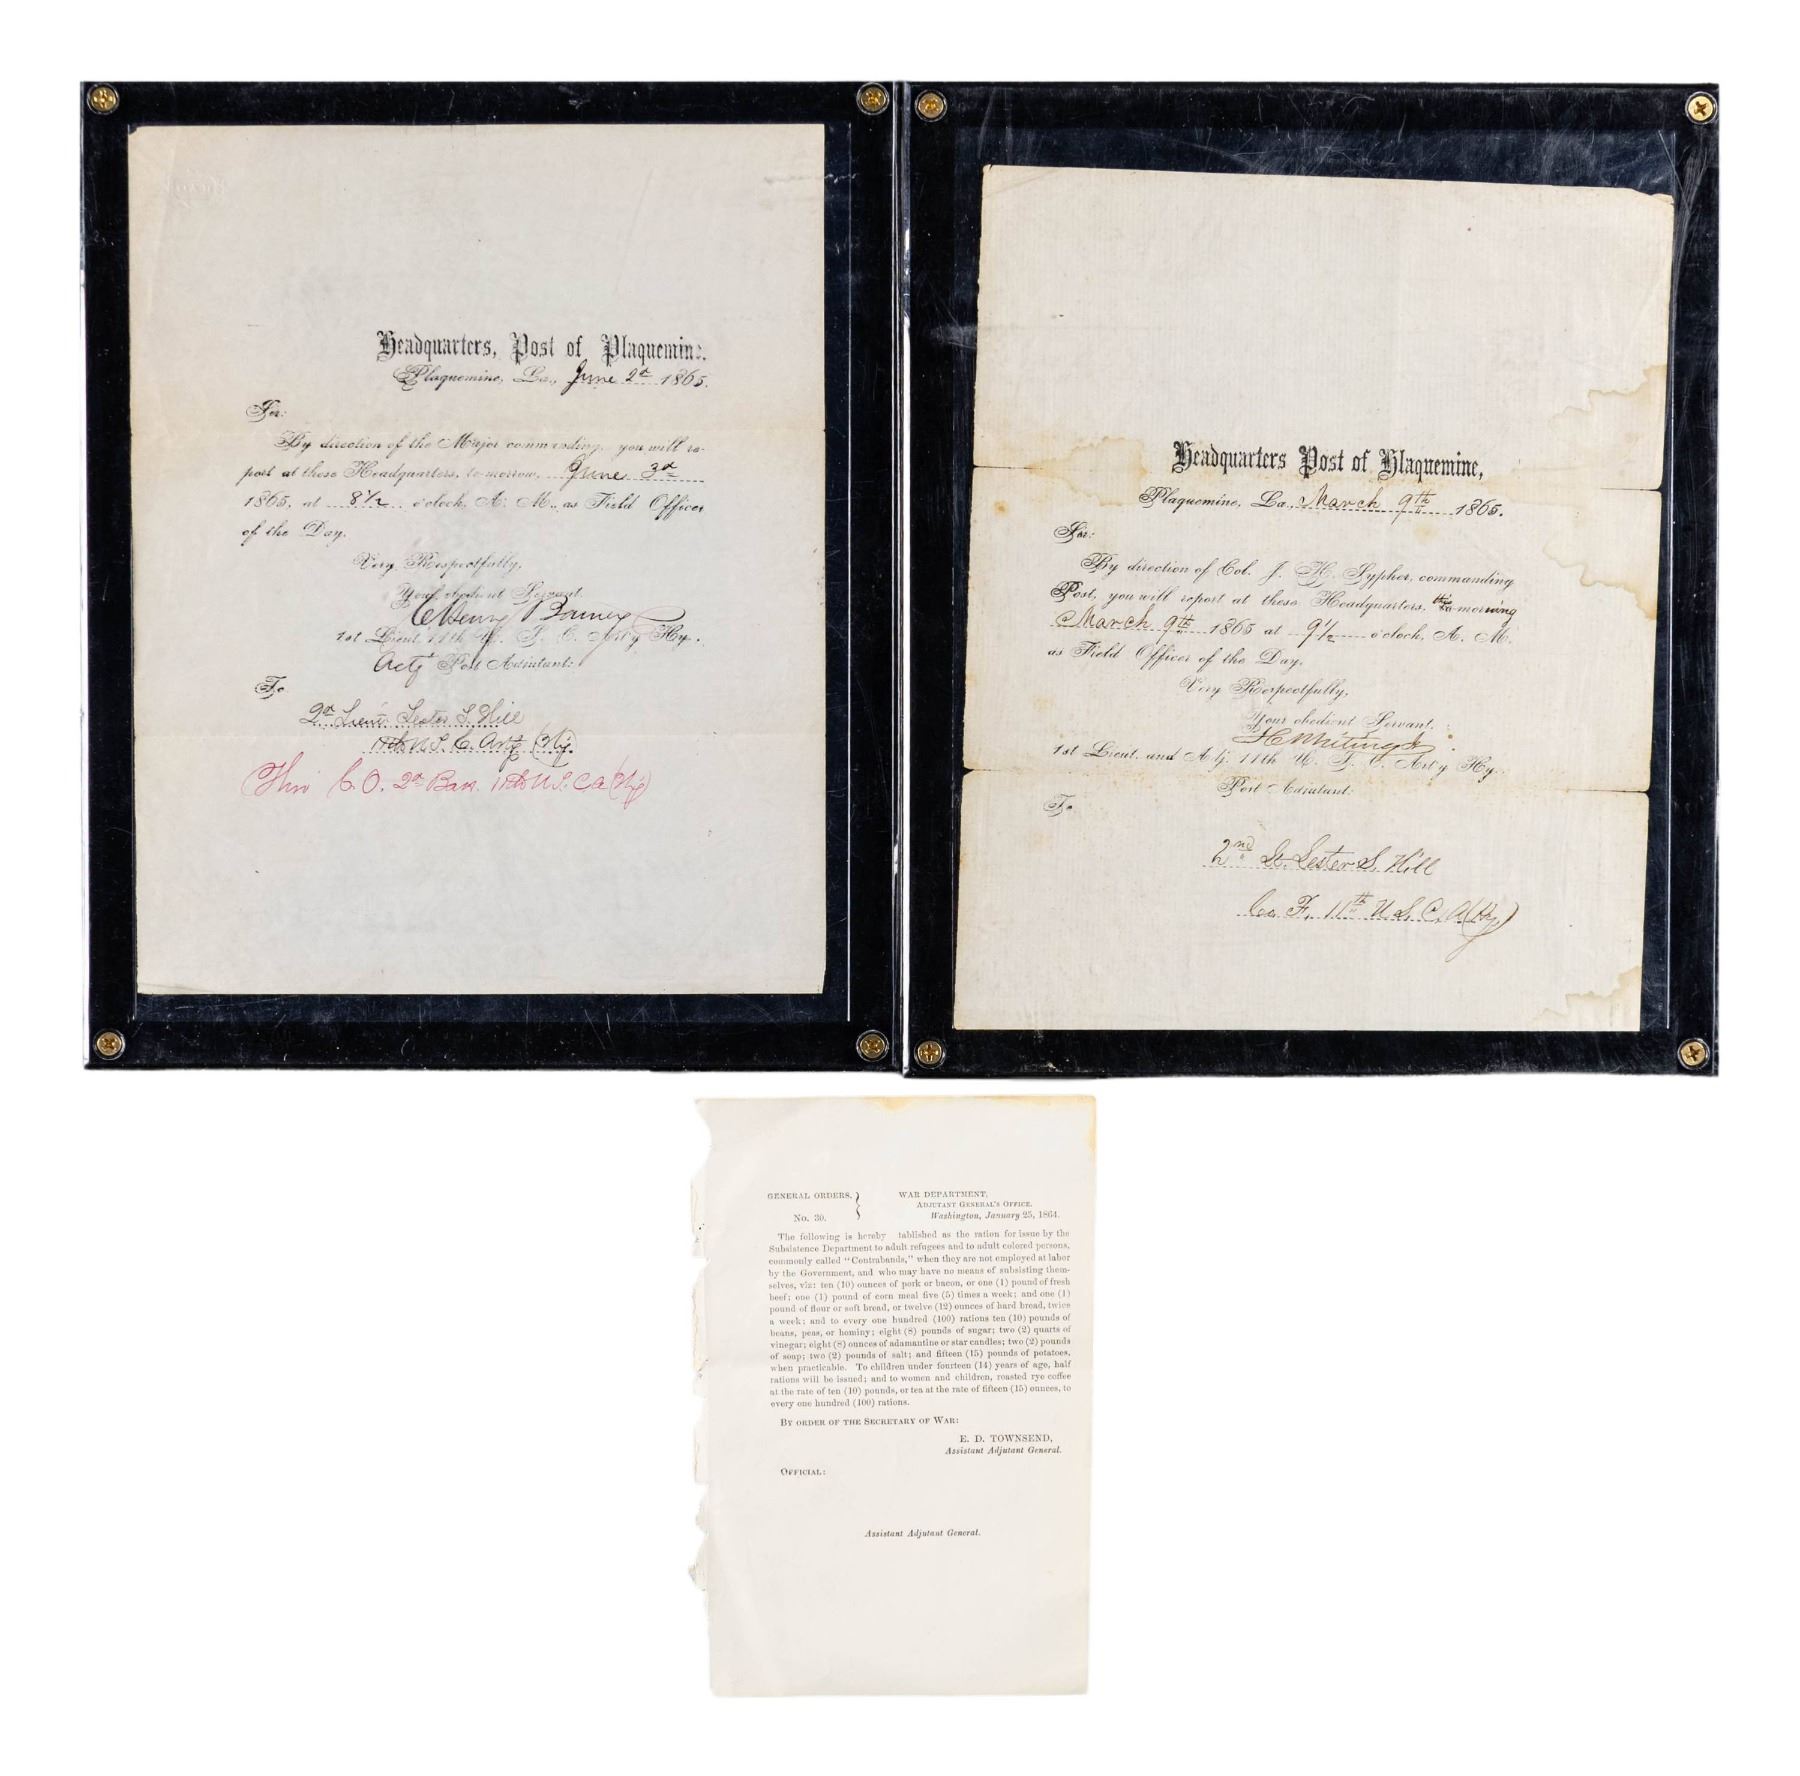 Headquarters, Post of Plaquemine.
Plaquemine, La., June 2d 1865.
Sir:
By direction of the Major commanding, you will re-
port at these Headquarters, to-morrow, June 3d
1865, at 8 1/2 o'clock, A. M., as Field Officer
of the Day.
Very Respectfully,
Your obedient Servant.
Henry
1st Lieut. 11th U. S. C. Art'y Hy.
Actg Post Adjutant.
To
2d Lieut Lester S. Hill
11th U. S. C. Arty (Hy)
Thro C. O. 2d Batt. 11th U. S. C A (Hy)
Headquarters Post of Plaquemine,
Plaquemine, La., March 9th 1865.
Sir:
By direction of Col. J. H. Sypher, commanding
Post, you will report at these Headquarters, this morning
March 9th 1865 at 9 1/2 o'clock, A. M.
as Field Officer of the Day.
Very Respectfully,
Your obedient Servant.
H C Whiting Jr
1st Lieut. and Adj. 11th U. S. C. Art'y Hy.
Post Adjutant.
To
2nd Lt. Lester S. Hill
Co. F, 11th U. S. C. A (Hy)
GENERAL ORDERS, } WAR DEPARTMENT,
ADJUTANT GENERAL'S OFFICE,
No. 30. Washington, January 25, 1864.
The following is hereby tablished as the ration for issue by the
Subsistence Department to adult refugees and to adult colored persons,
commonly called "Contrabands," when they are not employed at labor
by the Government, and who may have no means of subsisting them-
selves, viz: ten (10) ounces of pork or bacon, or one (1) pound of fresh
beef; one (1) pound of corn meal five (5) times a week; and one (1)
pound of flour or soft bread, or twelve (12) ounces of hard bread, twice
a week; and to every one hundred (100) rations ten (10) pounds of
beans, peas, or hominy; eight (8) pounds of sugar; two (2) quarts of
vinegar; eight (8) ounces of adamantine or star candles; two (2) pounds
of soap; two (2) pounds of salt; and fifteen (15) pounds of potatoes,
when practicable. To children under fourteen (14) years of age, half
rations will be issued; and to women and children, roasted rye coffee
at the rate of ten (10) pounds, or tea at the rate of fifteen (15) ounces, to
every one hundred (100) rations.
BY ORDER OF THE SECRETARY OF WAR:
E. D. TOWNSEND,
Assistant Adjutant General.
OFFICIAL:
Assistant Adjutant General.